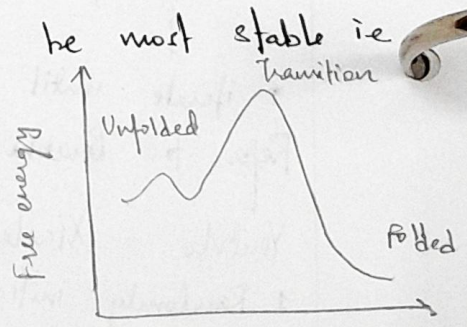 be most stable ie
Transition
Unfolded
Free energy
Folded